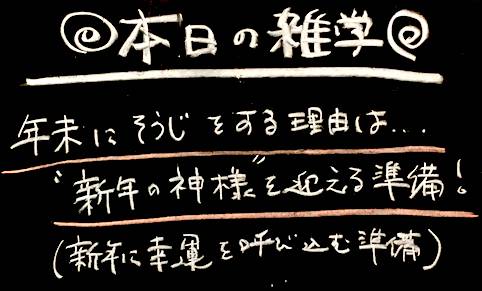 本日の雑学
年末にそうじをする理由は...
"新年の神様"を迎える準備!
(新年に幸運を呼び込む準備)